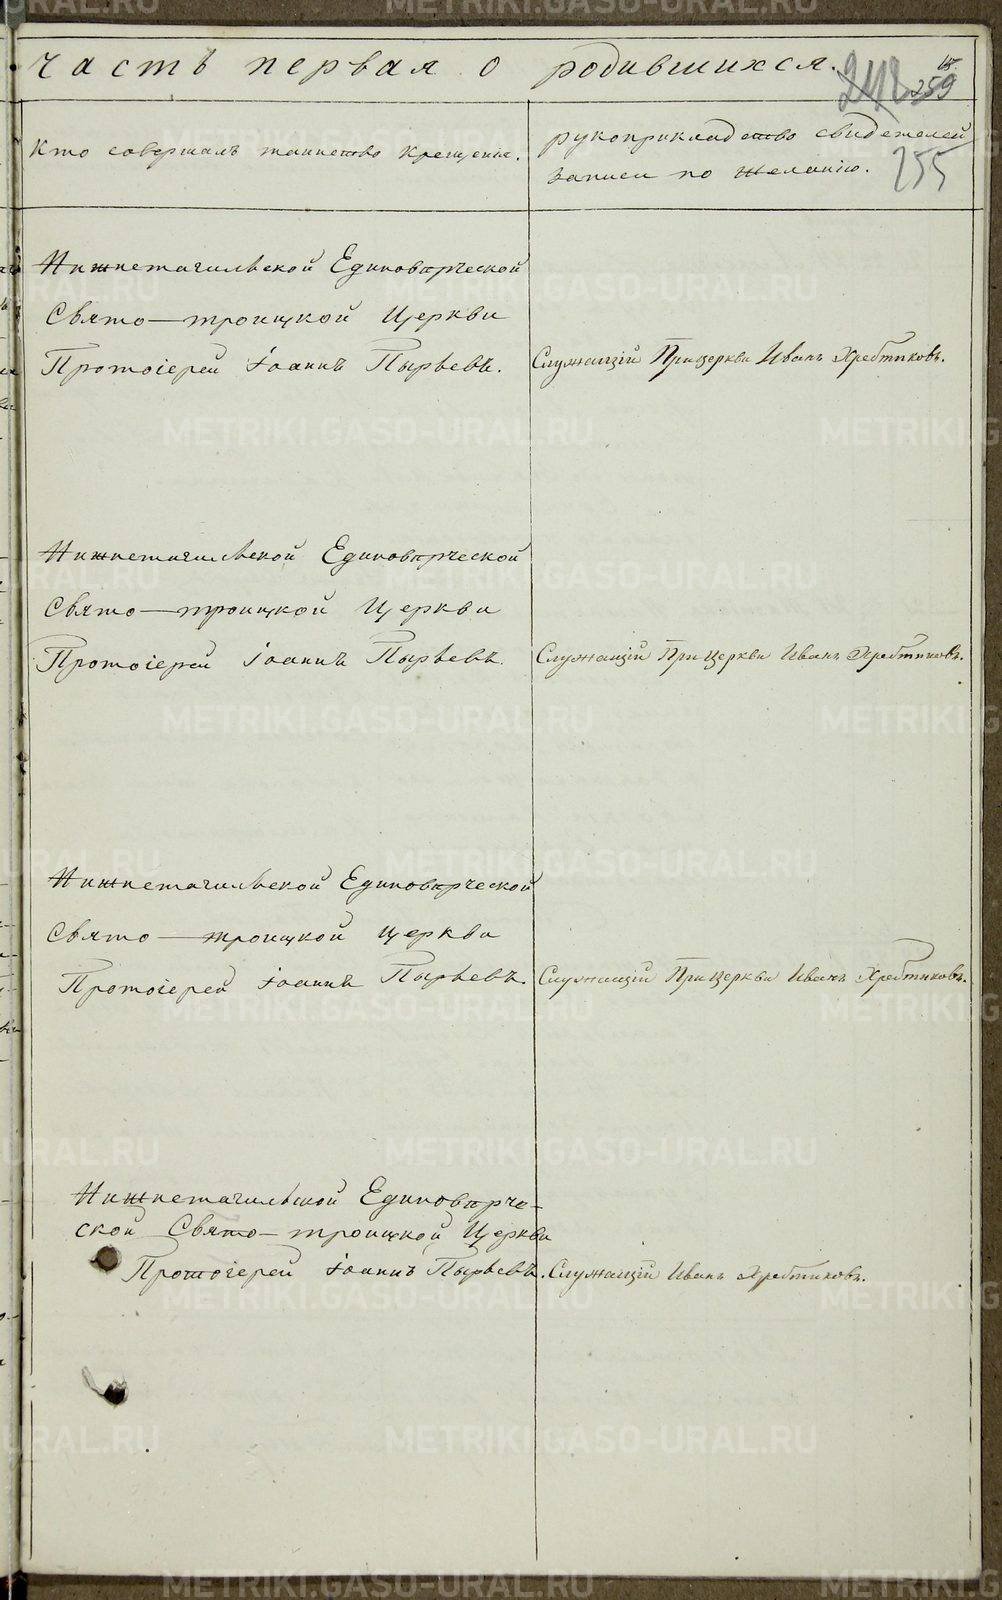 часть первая о родившихся.
259
Кто совершалъ таинство крещенія.
рукоприкладство свидетелей
записи по желанію.
255
Нижнетагильской Единовѣрческой
Свято-троицкой Церкви
Протоіерей Іоаннъ Пырьевъ.
Служащій При церкви Иванъ Хребтиковъ.
Нижнетагильской Единовѣрческой
Свято-троицкой Церкви
Протоіерей Іоаннъ Пырьевъ.
Служащій При Церкви Иванъ Хребтиковъ.
Нижнетагильской Единовѣрческой
Свято-троицкой Церкви
Протоіерей Іоаннъ Пырьевъ.
Служащій При Церкви Иванъ Хребтиковъ.
Нижнетагильской Единовѣрче-
ской Свято-троицкой Церкви
Протоіерей Іоаннъ Пырьевъ.
Служащій Иванъ Хребтиковъ.
METRIKI.GASO-URAL.RU